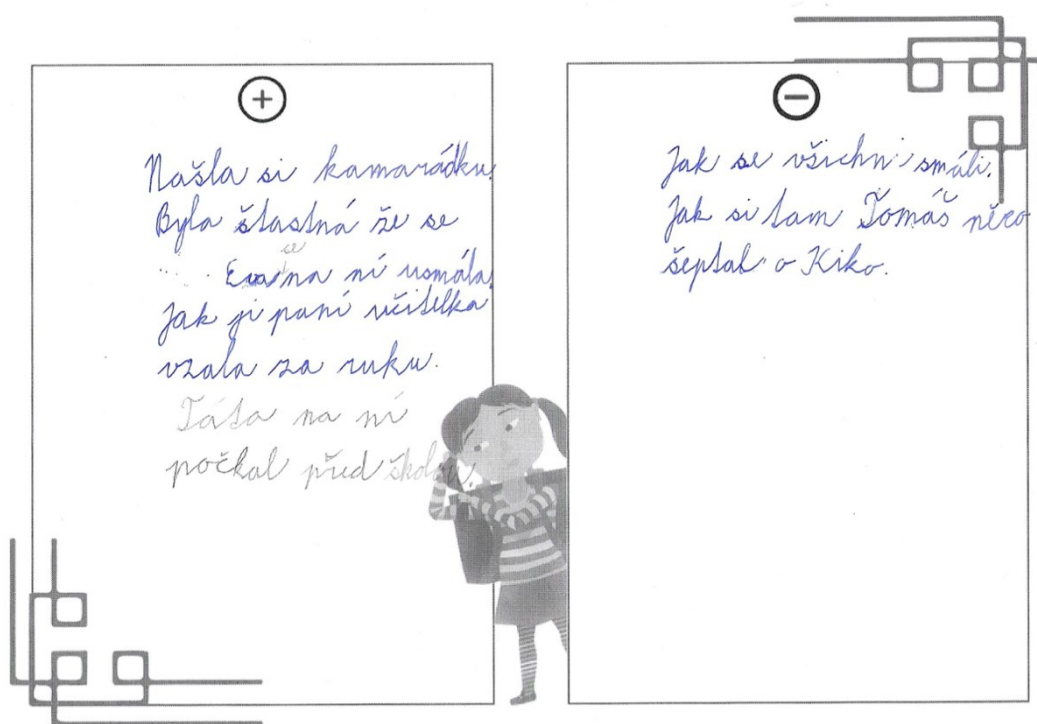 +
Našla si kamarádku.
Byla štastná že se
se
Eva na ní usmála.
Jak ji paní učitelka
vzala za ruku.
Táta na ní
počkal před školou.
−
Jak se všichni smáli.
Jak si tam Tomáš něco
šeptal o Kiko.